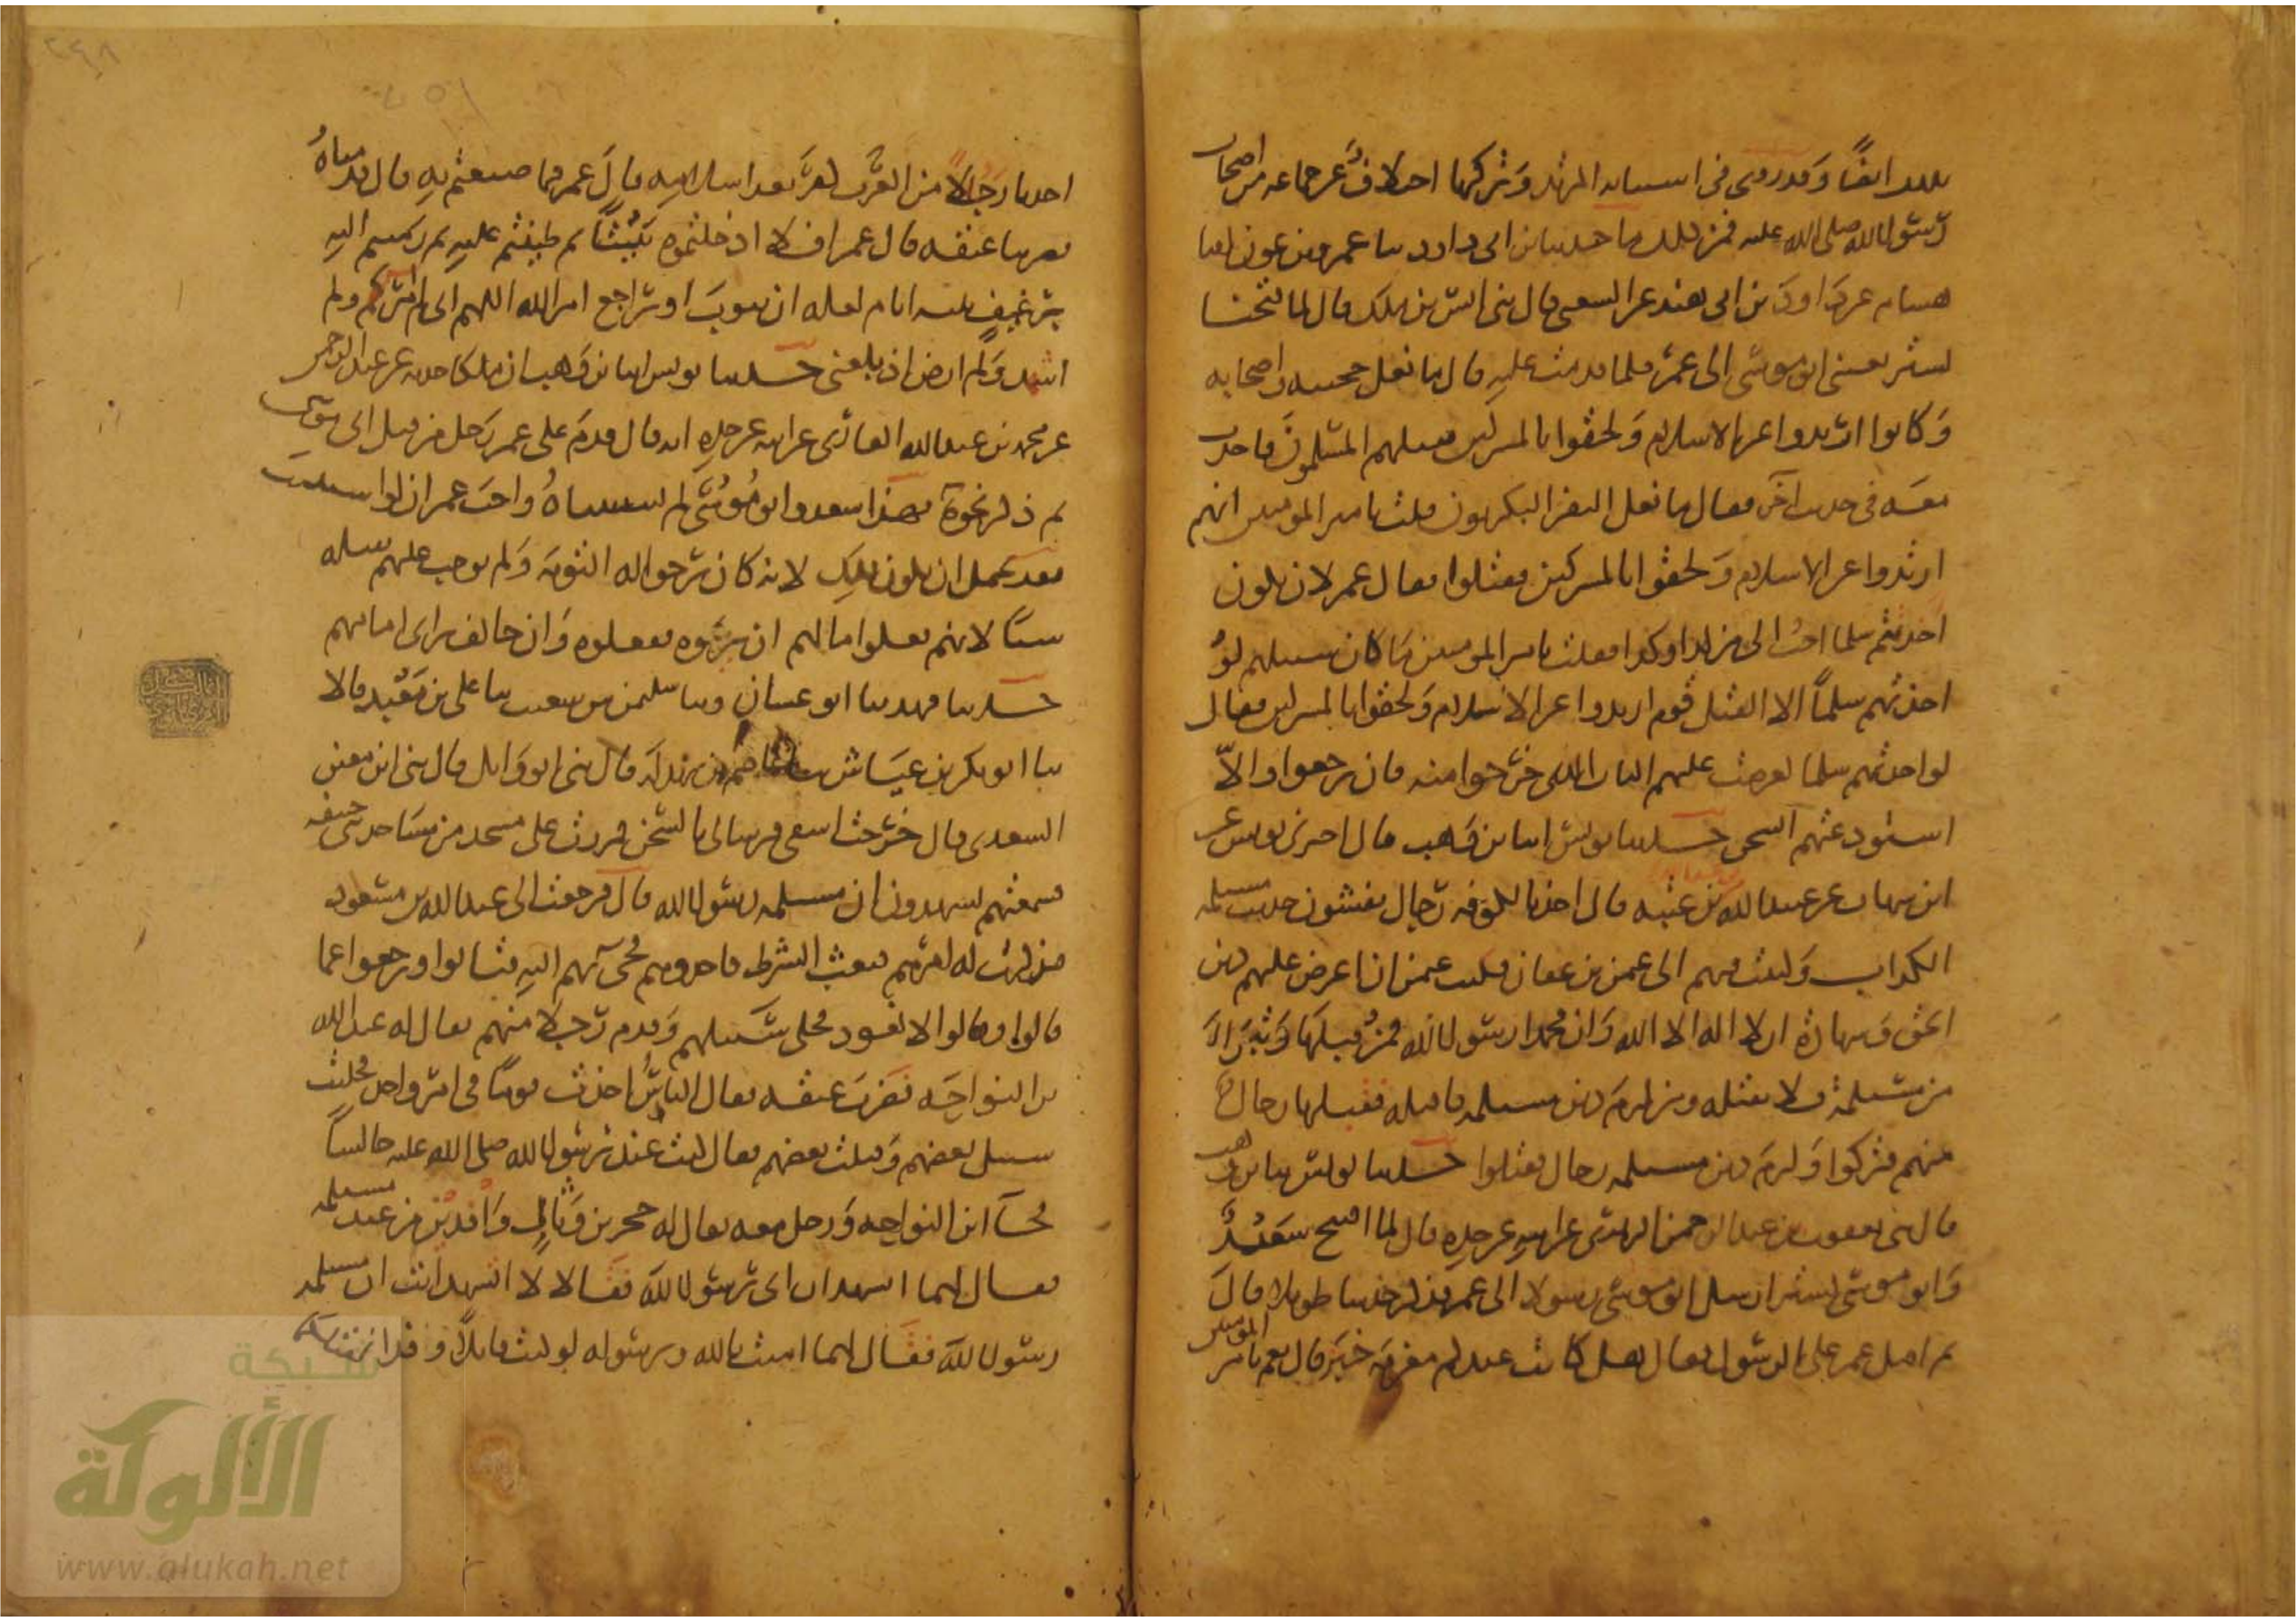 بذلك ايضًا وَقد روى فى استتابه المرتد وَتركها اختلافٌ عَن جماعه من اصحاب
رَسُول الله صلى الله عليه فمن ذلك ما حدثنا ابن ابى داود ثنا عمرو بن عون انا
هشام عن داود بن ابى هند عن الشعبى قال ثنى انس بن ملك قال لما فتحنا
تستر بعثنى ابو موسَى الى عمر فلما قدمت عليه قال ما فعل جحينه واصحابه
وَكانوا ارتدوا عن الاسلام وَلحقوا بالمشركين فقتلهم المسلمونَ فاخذت
معَه فى حديث اخَر فقال ما فعل النفر البكريون قلت يا امير المومنين انهم
ارتدوا عن الاسلام وَلحقوا بالمشركين فقتلوا فقال عمر لان يكون
اخَذتهم سلما احبُ الى من كذا وكذا فقلت يا امير المومنين مَا كان سبيلهم لوْ
اخذتُهم سلماً الا القتل قوم ارتدوا عن الاسلام وَلحقوا بالمشركين فقال
لو اخذتهم سلما لعرضت عليهم الباب الذى خَرَجوا منه فان رجعوا والّا
استودعتهم السجن حدثنا يونس انا ابن وَهب قال اخبرنى يونس عن
ابن شهاب عن عبيد الله بن عبد الله بن عتبه قال اخذ بالكوفه رَجال يفشون حديث مسيلمه
الكذاب وَكتب فيهم الى عثمن بن عفان فكتب عثمن ان اعرض عليهم دين
الحَق وَشهادة ان لا اله الا الله وَان محمدا رسُول الله فمنْ قبلهَا وَتبرَا
من مسَيلمة فلا تقتله ومن لزمَ دين مسيلمه فاقتله فقبلها رجال
منهم فتركوا وَلزمَ دين مسيلمه رجال فقتلوا حدثنا يونس انا ابن وهب
قال ثنى يعقوب بن عبد الرحمن الزهرى عن ابيه عن جده قال لما افتتح سَعْدٌ
وَابو موسى تستر ارسل ابو موسى رسولا الى عمر فذكر حديثا طويلا قالَ
ثم اقبل عمر على الرسُول فقال هل كانت عندكم مغربَه خبَر قال نعم يا امير المومنين
اخذنا رَجُلاً من العَرَب كفرَ بعد اسلامه قالَ عمر فما صنعتم به قال قدمناهُ
فضربنا عنقه قال عمر افلا ادخلتموه بَيْتًا ثم طينتم عليهِ ثم رميتم اليه
برَغيفٍ ثلثه ايام لعله ان يتوبَ او يرَاجع امر الله اللهم انى لم امر وَلم
اشهد وَلم ارض اذ بلغنى حدثنا يونس انا ابن وَهب ان ملكا حدثه عن عبد الرحمن
عن محمد بن عبد الله القارى عن ابيه عن جده انه قال قدمَ على عمر رَجل من قبل ابى موسى
ثم ذكر نحوَه فهذا سعد وابو مُوسَى لم يستتيباهُ واحبَ عمر ان لو استتيب
فقد يحتمل ان يكون ذلِك لانه كان يرَجو له التوبه وَلم يوجب عليهم بقتله
شيئًا لانهم فعلوا ما لهم ان يرَوه فيفعلوه وَان خالف راى امامهم
حدثنا فهد ثنا ابو غسان وثنا سليمن بن شعيب ثنا على بن مَعْبد قالا
ثنا ابو بكر بن عيَاش ثنا عاصم بن بهدلَه قال ثنى ابو وَايل قال ثنى ابن معيز
السعدى قال خرَجت اسقى فرسا لى بالشجَر فمررت على مسجد من مسَاجد بنى حنيفه
فسمعتهم يشهدون ان مسيلمه رسُول الله قال فرجعت الى عبد الله بن مسعود
فذكرت له امرَهم فبعث الشرط فاخذوهم فجىَ بهم اليه فتابوا ورجعوا عما
قالوا وقالوا لا نعود فخلى سَبيلهم وَقدم رَجلا منهم يقال له عبد الله
بن النواحَه فضربَ عنقه فقال الناسُ اخذت قومًا فى امر واحد فخليت
سبيل بعضهم وَقتلت بعضهم فقال كنت عند رَسُول الله صلى الله عليه جالسًا
فجَا ابن النواحه وَرجل معه يقال له حجر بن وَثال وَافدين من عند مسيلمه
فقال لهما اتشهدان انى رَسُول الله فقالا لا اتشهد انت ان مسيلمه
رسُول الله فقَال لهما امنت بالله وبرسُوله لو كنت قاتلًا وفدا لقتلتكما
شبكة
الألوكة
www.alukah.net